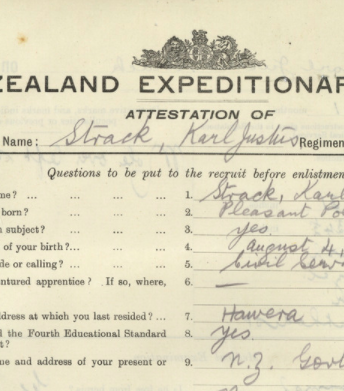 ZEALAND EXPEDITIONAR
ATTESTATION OF
Name: Strack, Karl Justus Regimen
Questions to be put to the recruit before enlistment
ne? ... ... ... ... 1. Strack, Karl
born? ... ... ... 2. Pleasant Po
n subject? ... ... ... 3. yes.
of your birth?... ... ... 4. August 4,
de or calling? ... ... ... 5. Civil Serv
ntured apprentice? If so, where, 6. —
ddress at which you last resided? ... 7. Hawera
d the Fourth Educational Standard 8. yes.
t?
me and address of your present or 9. N.Z. Gov